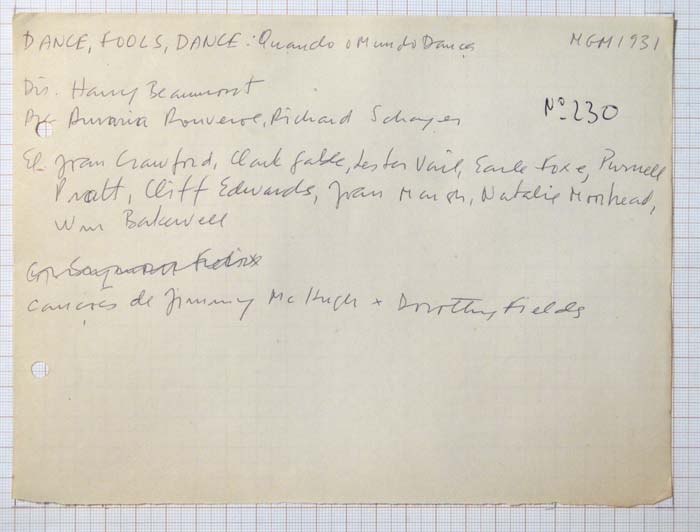 DANCE, FOOLS, DANCE: Quando o Mundo Dança MGM 1931
Dir. Harry Beaumont
Ar Aurania Rouverol, Richard Schayer
Nº 230
El Joan Crawford, Clark Gable, Lester Vail, Earle Foxe, Purnell
Pratt, Cliff Edwards, Joan Marsh, Natalie Moorhead,
Wm Bakewell
canções de Jimmy McHugh + Dorothy Fields